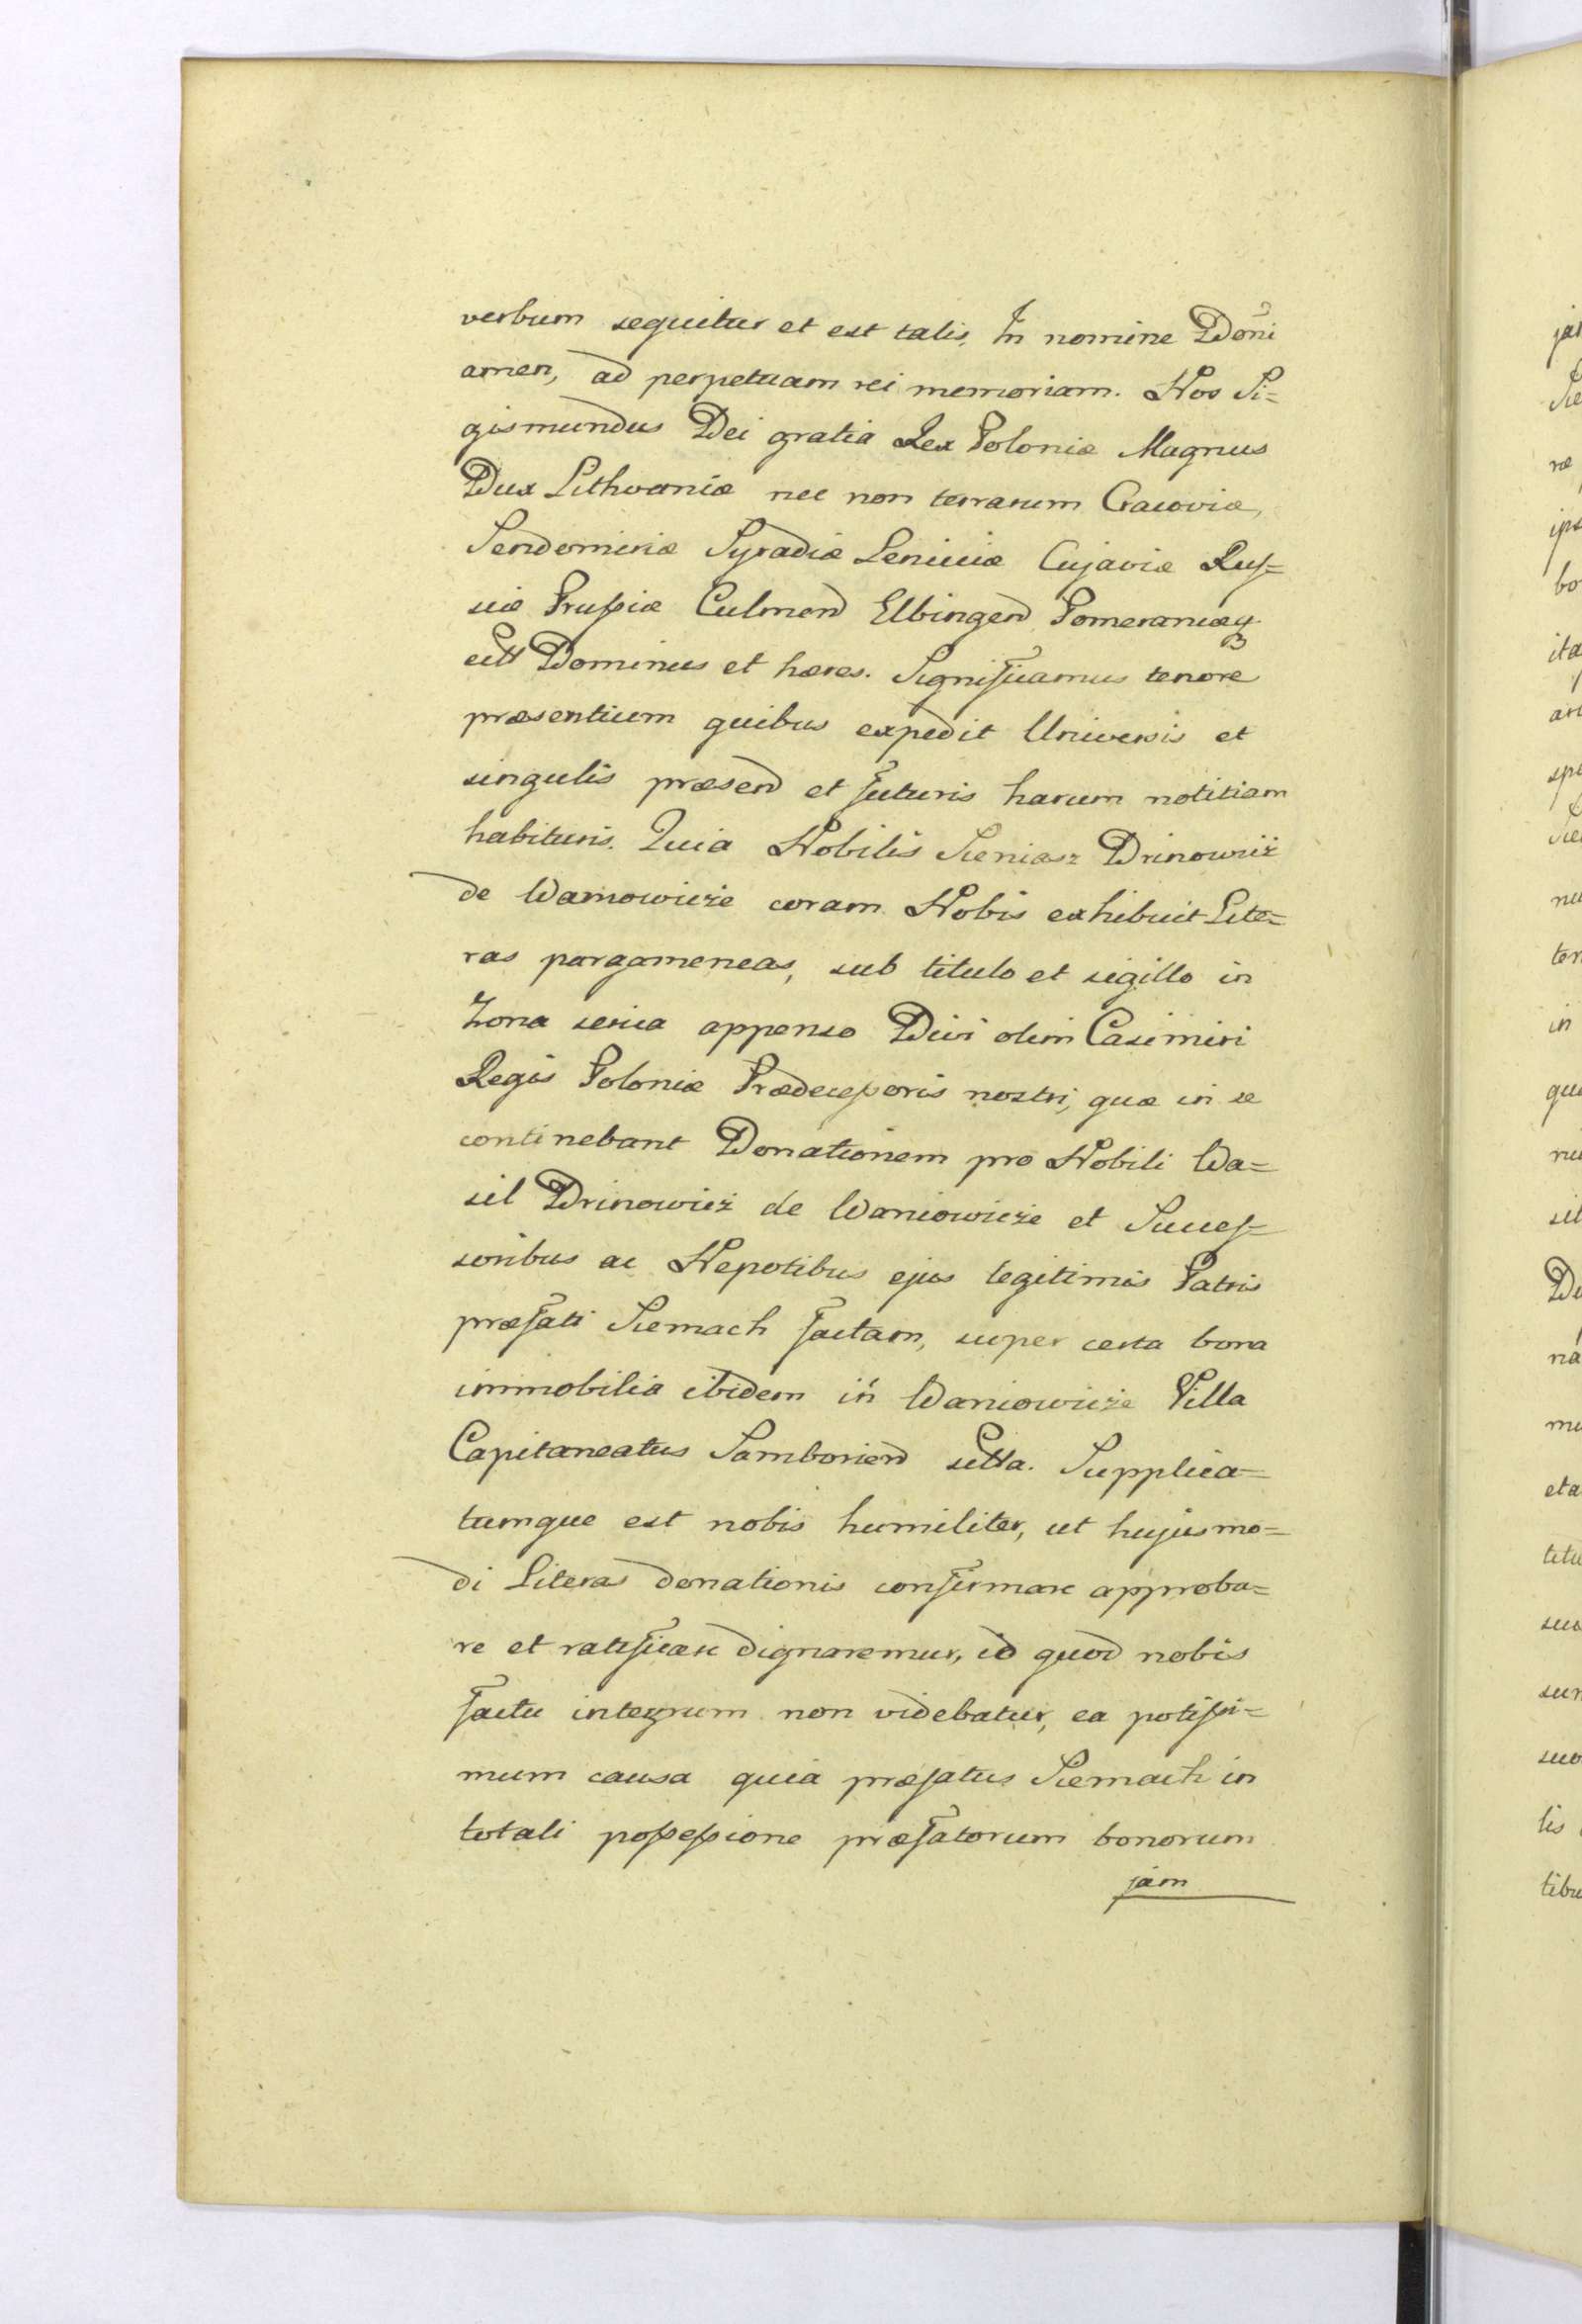 verbum sequitur et est talis, In nomine Dõni
amen, ad perpetuam rei memoriam. Nos Si=
gismundus Dei gratia Rex Poloniæ Magnus
Dux Lithvaniæ nec non terrarum Cracoviæ,
Sendomiriæ Syradiæ Lenciciæ Cujaviæ Rus=
siæ Prussiæ Culmen Elbingen Pomeraniæq
ett Dominus et hæres. Significamus tenore
præsentium quibus expedit Universis et
singulis præsen et futuris harum notitiam
habituris. Quia Nobilis Sieniasz Drinowicz
de Waniowicze coram Nobis exhibuit Lite=
ras pargameneas, sub titulo et sigillo in
Zona serica appenso Divi olim Casimiri
Regis Poloniæ Prædecessoris nostri, quæ in se
continebant Donationem pro Nobili Wa=
sil Drinowicz de Waniowicze et Succes=
soribus ac Nepotibus ejus legitimis Patris
præfati Siemach factam, super certa bona
immobilia ibidem in Waniowicze Villa
Capitaneatus Samborien sitta. Supplica=
tumque est nobis humiliter, ut hujusmo=
di Literas donationis confirmare approba=
re et ratificare dignaremur, id quod nobis
factu integrum non videbatur, ea potissi=
mum causa quia præfatus Siemach in
totali possessione præfatorum bonorum
jam